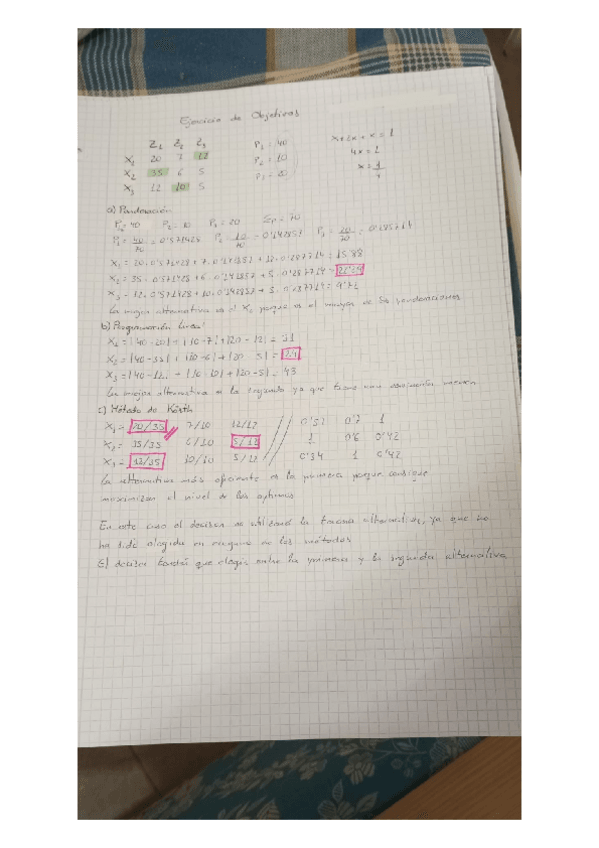 Ejercicio de Objetivos
Z1 Z2 Z3
X1 20 7 12
X2 35 6 5
X3 12 10 5
P1 = 40
P2 = 10
P3 = 20
x+2x+x=1
4x=1
x=1/4
a) Ponderación
P1= 40 P2= 10 P3= 20 = 70
P1= 40/70 = 0'571428 P2= 10/70 = 0'142857 P3= 20/70 = 0'285714
X1= 20·0'571428 + 7·0'142857 + 12·0'285714 = 15'88
X2= 35·0'571428 + 6·0'142857 + 5·0'285714 =
X3= 12·0'571428 + 10·0'142857 + 5·0'285714 = 9'72
La mejor alternativa es el porque es el mayor de las ponderaciones
b) Programación Lineal
X1= |40-20| + |10-7| + |20-12| = 31
X2= |40-35| + |10-6| + |20-5| = 24
X3= |40-12| + |10-10| + |20-5| = 43
La mejor alternativa es la segunda ya que tiene una menor
c) Método de Korth
X1= 20/35 7/10 12/12 0'57 0'7 1
X2= 35/35 6/10 5/12 1 0'6 0'42
X3= 12/35 10/10 5/12 0'34 1 0'42
La alternativa más eficiente es la primera porque consigue
maximizar el nivel de los óptimos
En este caso el decisor no utilizará la tercera alternativa, ya que no
ha sido elegida en ninguno de los métodos
El decisor tendrá que elegir entre la primera y la segunda alternativa